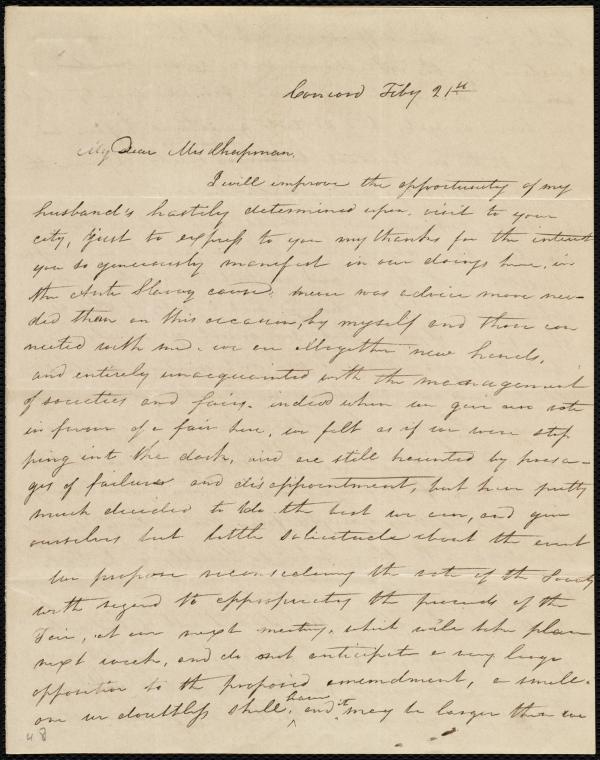 Concord Feby 21st
My Dear Mrs Chapman,
I will improve the opportunity of my
husband's hastily determined upon visit to your
city, just to express to you my thanks for the interest
you so generously manifest in our doings here, in
the Anti Slavery cause; never was advice more nee-
ded than on this occasion, by myself and those con
nected with me. we are altogether new hands,
and entirely unacquainted with the management
of societies and fairs. indeed when we gave our vote
in favour of a fair here, we felt as if we were step
ping into the dark, and are still haunted by presa-
ges of failure and disappointment, but have pretty
much decided to do the best we can, and give
ourselves but little solicitude about the event
We propose reconsidering the vote of the Society
with regard to appropriating the proceeds of the
Fair, at our next meeting, which will take place
next week, and do not anticipate a very large
opposition to the proposed amendment, a small
one we doubtless shall have, and it may be larger than we
48